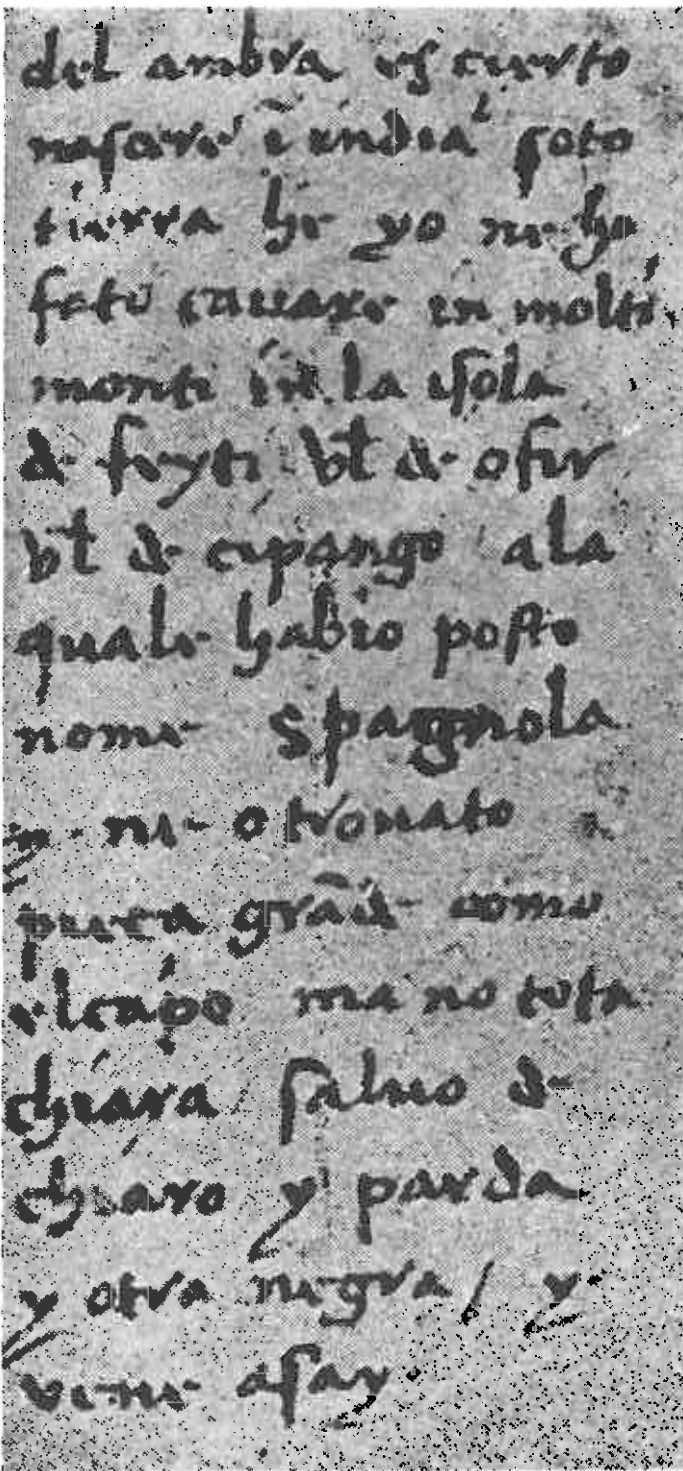 del ambra es cierto
nascere ĩ india soto
tierra he yo ne ho
fato cauare in molti
monti in la isola
de feyti vl̃ de ofir
vl̃ de cipango a la
quale habio posto
nome spagnola
y ne o trouato
pieça grãde como
el capo ma no tota
chiara saluo de
chiaro y parda
y otra negra / y
vene asay